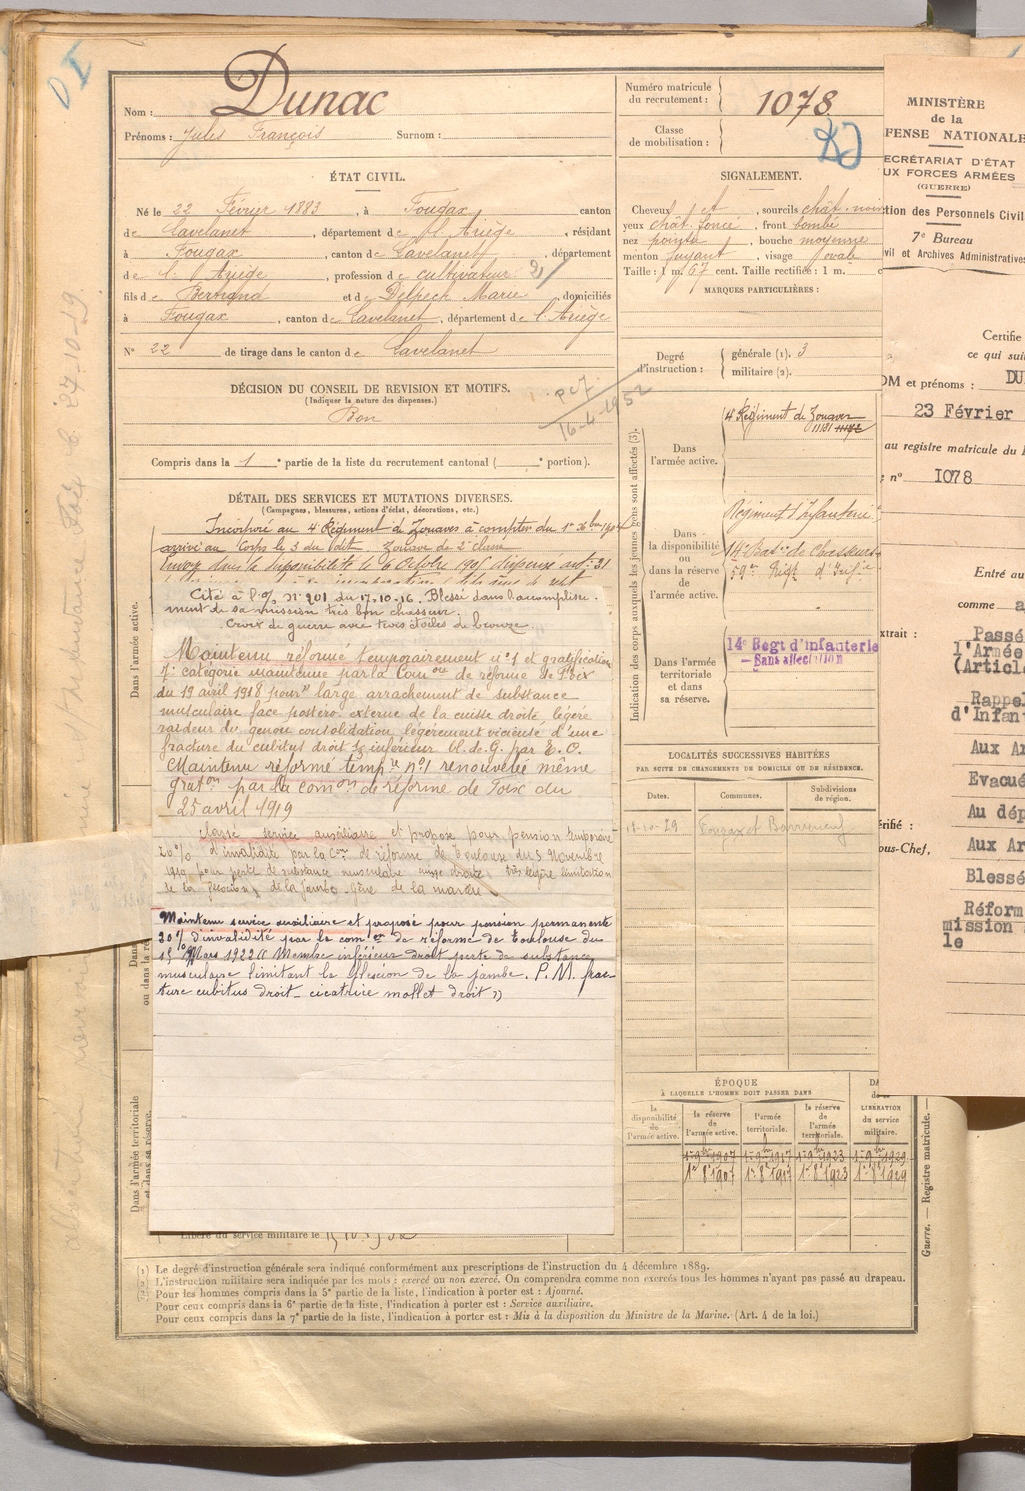 Nom : Dunac
Prénoms : Jules François Surnom :
Numéro matricule du recrutement : 1078
Classe de mobilisation :
ÉTAT CIVIL.
Né le 22 Février 1883, à Fougax, canton
de Lavelanet, département de l'Ariège, résidant
à Fougax, canton de Lavelanet, département
de l'Ariège, profession de cultivateur 21
fils de Bertrand et de Delpech Marie, domiciliés
à Fougax, canton de Lavelanet, département de l'Ariège
N° 22 de tirage dans le canton de Lavelanet
SIGNALEMENT.
Cheveux et, sourcils chât. noir
yeux chât. foncé, front bombé
nez pointu, bouche moyenne
menton fuyant, visage ovale
Taille : 1 m. 67 cent. Taille rectifiée : 1 m. c
MARQUES PARTICULIÈRES :
Degré d'instruction : générale (1). 3
militaire (2).
DÉCISION DU CONSEIL DE REVISION ET MOTIFS.
(Indiquer la nature des dispenses.)
Bon
16-4-1952
Compris dans la 1e partie de la liste du recrutement cantonal ( e portion).
DÉTAIL DES SERVICES ET MUTATIONS DIVERSES.
(Campagnes, blessures, actions d'éclat, décorations, etc.)
Incorporé au 4e Régiment de Zouaves à compter du 1er
arrivé au Corps le 3 du dit. Zouave de 2e classe
Envoyé dans la disponibilité le 6 Octobre 1905 dispensé art. 21
Cité à l'O/ n° 901 du 17.10.16. Blessé dans l'accomplisse-
ment de sa mission très bon chasseur.
Croix de guerre avec trois étoiles de bronze.
Maintenu réformé temporairement n°1 et gratification
7e catégorie maintenue par la Com on de réforme de Foix
du 19 avril 1918 pour "large arrachement de substance
musculaire face postéro-externe de la cuisse droite, légère
raideur du genou consolidation légèrement vicieuse d'une
fracture du cubitus droit inférieur Bl. de G. par E. O.
Maintenu réformé temp re n°1 renouvelée même
grat on par la com on de réforme de Foix du
25 avril 1919
Classé service auxiliaire et proposé pour pension temporaire
20% d'invalidité par la Con de réforme de Toulouse du 5 Novembre
pour perte de substance musculaire droite, très légère limitation
de la flexion de la jambe. Gêne de la marche
Maintenu service auxiliaire et proposé pour pension permanente
20% d'invalidité par la com on de réforme de Toulouse du
15 Mars 1922 Membre inférieur droit perte de substance
musculaire limitant la flexion de la jambe. P. M. frac-
ture cubitus droit - cicatrice mollet droit »
Libéré du service militaire le
Dans l'armée active.
Dans l'armée territoriale et dans sa réserve.
Indication des corps auxquels les jeunes gens sont affectés (3).
Dans l'armée active. 4e Régiment de Zouaves
11181
Dans la disponibilité ou dans la réserve de l'armée active.
Régiment d'Infanterie
14e Bat on de Chasseurs
59me Rég t d'Inf ie
Dans l'armée territoriale et dans sa réserve.
14e Regt d'infanterie
— Sans affectation
LOCALITÉS SUCCESSIVES HABITÉES
PAR SUITE DE CHANGEMENTS DE DOMICILE OU DE RÉSIDENCE.
Dates. Communes. Subdivisions de région.
29 Fougax et Barrineuf
ÉPOQUE
À LAQUELLE L'HOMME DOIT PASSER DANS
la disponibilité de l'armée active. la réserve de l'armée active. l'armée territoriale. la réserve de l'armée territoriale. LIBÉRATION du service militaire.
1er 9bre 1907 1er 9bre 1917 1er 9bre 1923 1er 9bre 1929
1er 8e 1907 1er 8e 1917 1er 8e 1923 1er 8e 1929
Guerre. — Registre matricule. —
(1) Le degré d'instruction générale sera indiqué conformément aux prescriptions de l'instruction du 4 décembre 1889.
(2) L'instruction militaire sera indiquée par les mots : exercé ou non exercé. On comprendra comme non exercés tous les hommes n'ayant pas passé au drapeau.
(3) Pour les hommes compris dans la 5e partie de la liste, l'indication à porter est : Ajourné.
Pour ceux compris dans la 6e partie de la liste, l'indication à porter est : Service auxiliaire.
Pour ceux compris dans la 7e partie de la liste, l'indication à porter est : Mis à la disposition du Ministre de la Marine. (Art. 4 de la loi.)
MINISTÈRE
de la
FENSE NATIONALE
ECRÉTARIAT D'ÉTAT
UX FORCES ARMÉES
(GUERRE)
tion des Personnels Civil
7e Bureau
vil et Archives Administratives
Certifie
ce qui suit
OM et prénoms : DU
23 Février
au registre matricule du
n° I078
Entré au
comme
xtrait :
Passé
l'Armée
(Artic
Rappe
d'Infan
Aux Ar
Evacué
Au dép
érifié :
ous-Chef,
Aux Ar
Blessé
Réform
mission
le